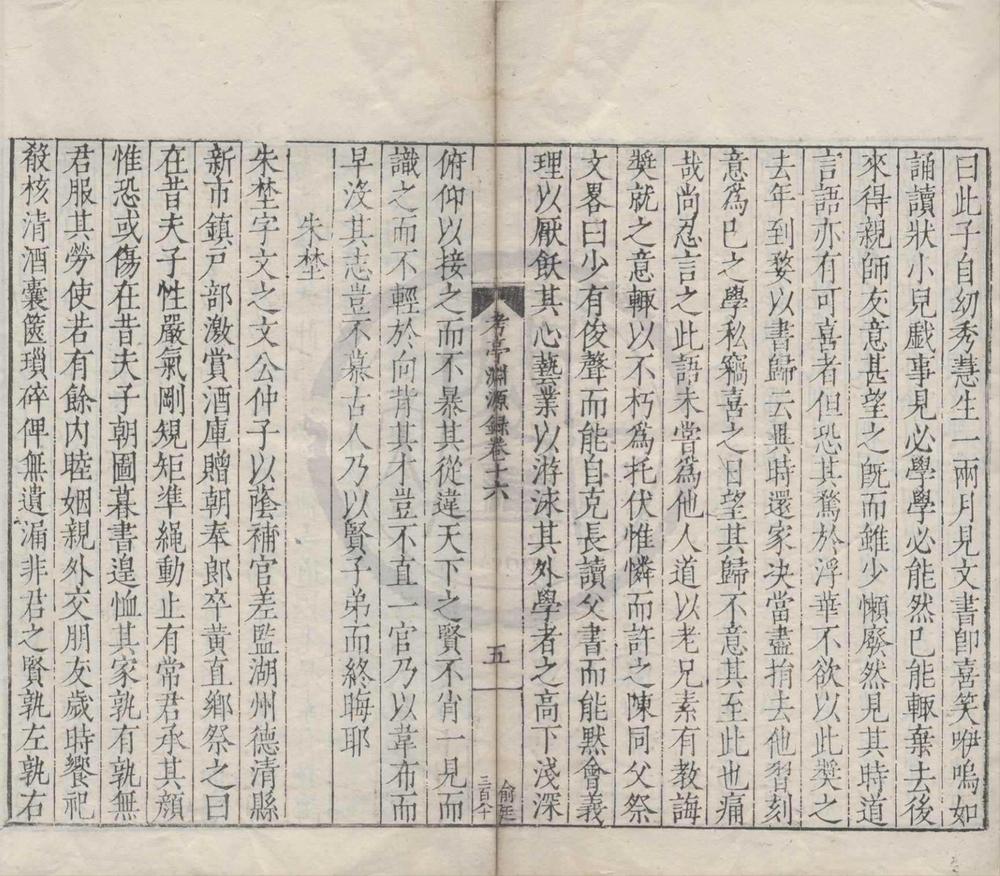 曰此子自幼秀慧生一兩月見文書卽喜笑咿嗚如
誦讀狀小兒戲事見必學學必能然已能輒棄去後
來得親師友意甚望之旣而雖少懶廢然見其時道
言語亦有可喜者但恐其騖於浮華不欲以此奬之
去年到婺以書歸云異時還家決當盡捐去他習刻
意爲已之學私竊喜之日望其歸不意其至此也痛
哉尚忍言之此語未嘗爲他人道以老兄素有教誨
奬就之意輒以不朽爲托伏惟憐而許之陳同父祭
文畧曰少有俊聲而能自克長讀父書而能黙會義
理以厭飫其心藝業以游泳其外學者之高下淺深
考亭淵源錄卷十六
五
俞廷
三百八十
俯仰以接之而不暴其從違天下之賢不肖一見而
識之而不輕於向背其才豈不直一官乃以韋布而
早沒其志豈不慕古人乃以賢子弟而終晦耶
朱埜
朱埜字文之文公仲子以蔭補官差監湖州德清縣
新市鎮戶部激賞酒庫贈朝奉郎卒黄直鄉祭之曰
在昔夫子性嚴氣剛規矩準繩動止有常君承其顏
惟恐或傷在昔夫子朝圖暮書遑恤其家孰有孰無
君服其勞使若有餘内睦姻親外交朋友歲時饗祀
殽核清酒囊篋瑣碎俾無遺漏非君之賢孰左孰右